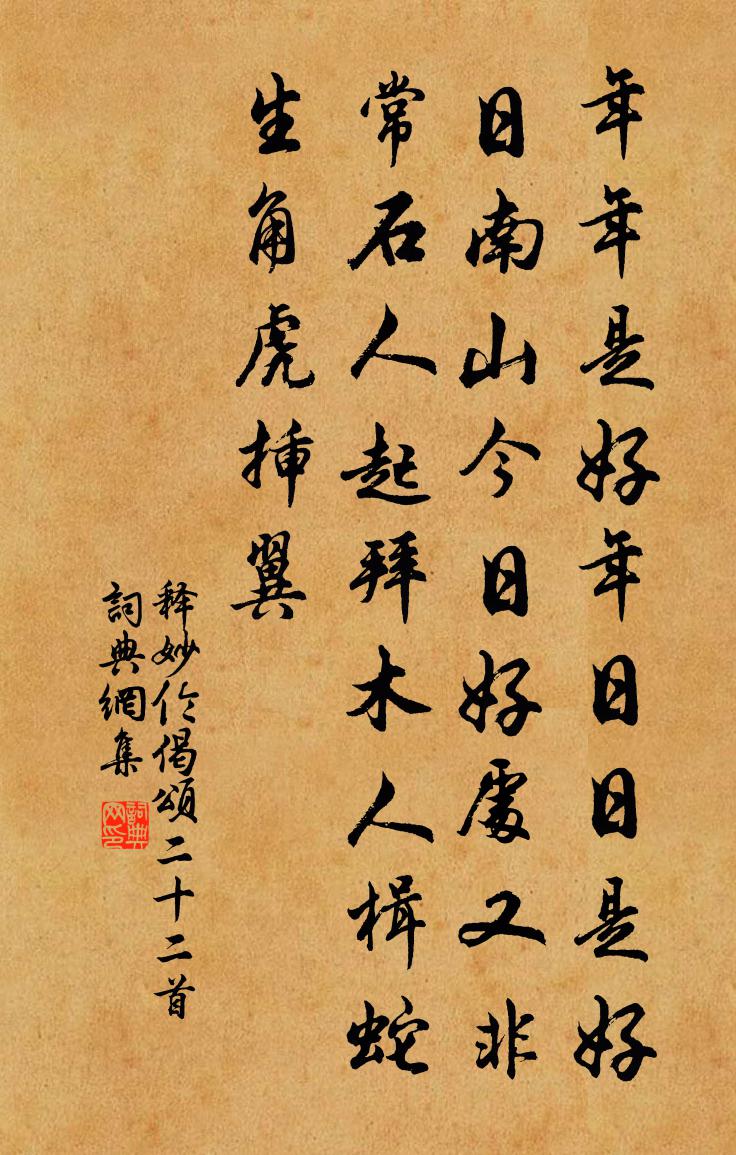 年年是好年日日是好
日南山今日好處又非
常石人起拜木人楫蛇
生角虎揷翼
释妙伦偈頌二十二首
詞典網集
詞典网印